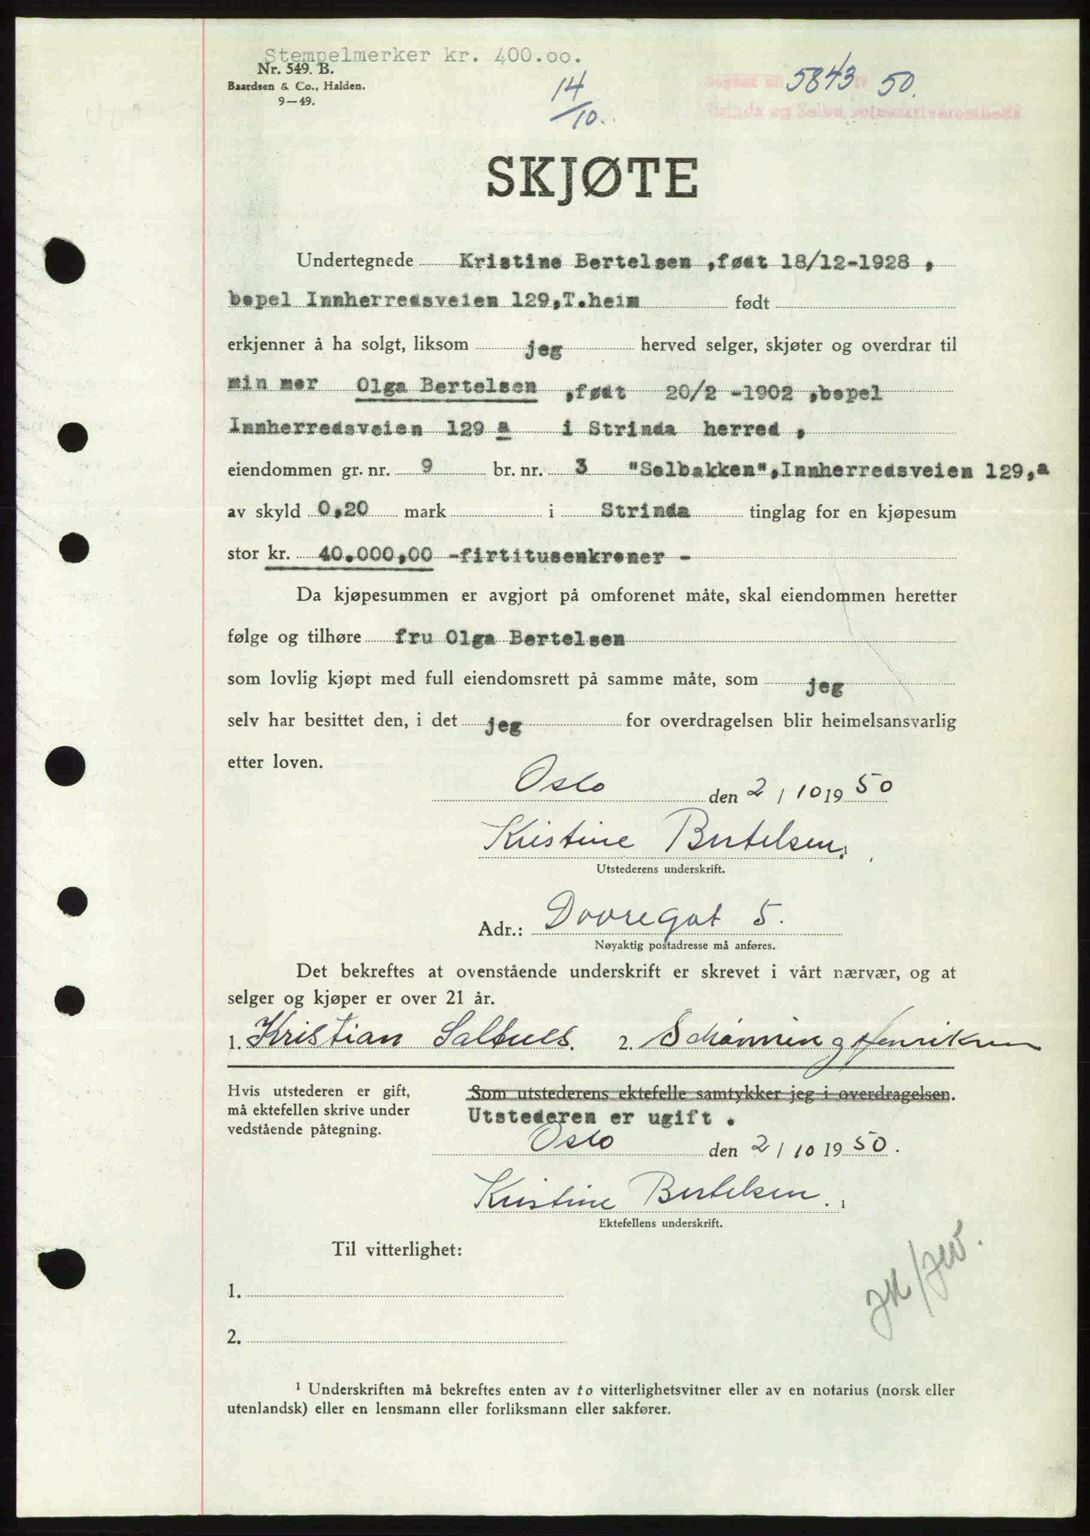 Stempelmerker kr. 400.oo.
Nr. 549. B.
Baardsen & Co., Halden.
9—49.
14/10.
5843 50.
SKJØTE
Undertegnede Kristine Bertelsen ,født 18/12-1928 ,
bopel Innherredsveien 129,T.heim født
erkjenner å ha solgt, liksom jeg herved selger, skjøter og overdrar til
min mor Olga Bertelsen ,født 20/2 -1902 ,bopel
Innherredsveien 129 a i Strinda herred ,
eiendommen gr. nr. 9 br. nr. 3 "Solbakken",Innherredsveien 129,a
av skyld 0,20 mark i Strinda tinglag for en kjøpesum
stor kr. 40.000,00 -firtitusenkroner -
Da kjøpesummen er avgjort på omforenet måte, skal eiendommen heretter
følge og tilhøre fru Olga Bertelsen
som lovlig kjøpt med full eiendomsrett på samme måte, som jeg
selv har besittet den, i det jeg for overdragelsen blir heimelsansvarlig
etter loven.
Oslo den 2 / 10 19 50
Kristine Bertelsen.¹
Utstederens underskrift.
Adr.: Dovregat 5.
Nøyaktig postadresse må anføres.
Det bekreftes at ovenstående underskrift er skrevet i vårt nærvær, og at
selger og kjøper er over 21 år.
1. Kristian 2. Schønning Henriksen
Hvis utstederen er gift,
må ektefellen skrive under
vedstående påtegning.
Som utstederens ektefelle samtykker jeg i overdragelsen.
Utstederen er ugift .
Oslo den 2 / 10 19 50.
Kristine Bertelsen. ¹
Ektefellens underskrift.
Til vitterlighet:
1.
2.
¹ Underskriften må bekreftes enten av to vitterlighetsvitner eller av en notarius (norsk eller
utenlandsk) eller en lensmann eller forliksmann eller sakfører.